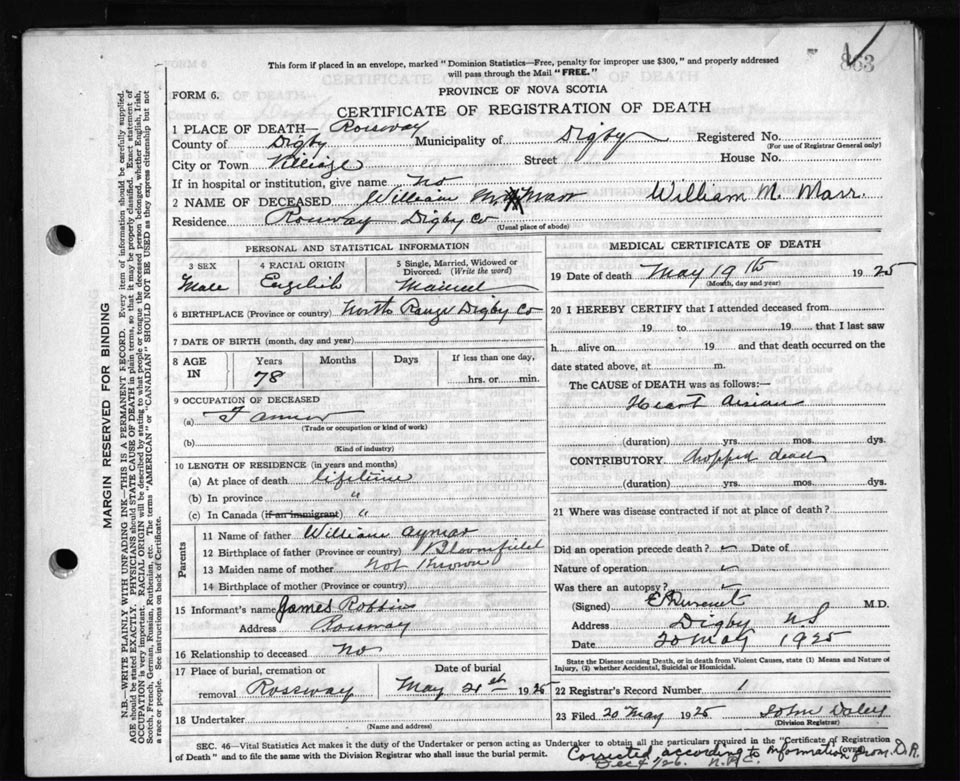 863
This form if placed in an envelope, marked "Dominion Statistics—Free, penalty for improper use $300," and properly addressed
will pass through the Mail "FREE."
FORM 6.
PROVINCE OF NOVA SCOTIA
CERTIFICATE OF REGISTRATION OF DEATH
1 PLACE OF DEATH— Rossway
County of Digby Municipality of Digby Registered No.
(For use of Registrar General only)
City or Town Village Street House No.
If in hospital or institution, give name no
2 NAME OF DECEASED William M Marr William M. Marr.
Residence Rossway Digby Co
(Usual place of abode)
PERSONAL AND STATISTICAL INFORMATION
3 SEX 4 RACIAL ORIGIN 5 Single, Married, Widowed or Divorced. (Write the word)
Male English Married
6 BIRTHPLACE (Province or country) North Range Digby Co
7 DATE OF BIRTH (month, day and year)
8 AGE IN Years Months Days If less than one day,
78 hrs. or min.
9 OCCUPATION OF DECEASED
(a) Farmer
(Trade or occupation or kind of work)
(b)
(Kind of industry)
10 LENGTH OF RESIDENCE (in years and months)
(a) At place of death lifetime
(b) In province "
(c) In Canada (if an immigrant) "
Parents
11 Name of father William Aymar
12 Birthplace of father (Province or country) Bloomfield
13 Maiden name of mother Not Known
14 Birthplace of mother (Province or country)
15 Informant's name James Robbins
Address Rossway
16 Relationship to deceased No
17 Place of burial, cremation or removal Rossway Date of burial May 21st 1925
18 Undertaker
(Name and address)
MEDICAL CERTIFICATE OF DEATH
19 Date of death May 19th 1925
(Month, day and year)
20 I HEREBY CERTIFY that I attended deceased from
19 to 19 that I last saw
h alive on 19 and that death occurred on the
date stated above, at m.
The CAUSE of DEATH was as follows:—
Heart disease
(duration) yrs. mos. dys.
CONTRIBUTORY dropped dead
(duration) yrs. mos. dys.
21 Where was disease contracted if not at place of death?
Did an operation precede death? Date of
Nature of operation
Was there an autopsy?
(Signed) M.D.
Address Digby N S
Date 20 May 1925
State the Disease causing Death, or in death from Violent Causes, state (1) Means and Nature of Injury, (2) whether Accidental, Suicidal or Homicidal.
22 Registrar's Record Number 1
23 Filed 20 May 1925 John Daley
(Division Registrar)
SEC. 46—Vital Statistics Act makes it the duty of the Undertaker or person acting as Undertaker to obtain all the particulars required in the "Certificate of Registration
of Death" and to file the same with the Division Registrar who shall issue the burial permit. (over)
Corrected according to information from D.R.
Dec 4/26.
MARGIN RESERVED FOR BINDING
N.B.—WRITE PLAINLY WITH UNFADING INK—THIS IS A PERMANENT RECORD. Every item of information should be carefully supplied.
AGE should be stated EXACTLY. PHYSICIANS should STATE CAUSE OF DEATH in plain terms, so that it may be properly classified. Exact statement of
OCCUPATION is very important. RACIAL ORIGIN will be described by stating to what people or tongue the deceased person belonged, whether English, Irish,
Scotch, French, German, Russian, Ruthenian, etc. The terms "AMERICAN" or "CANADIAN" SHOULD NOT BE USED as they express citizenship but not
a race or people. See instructions on back of Certificate.